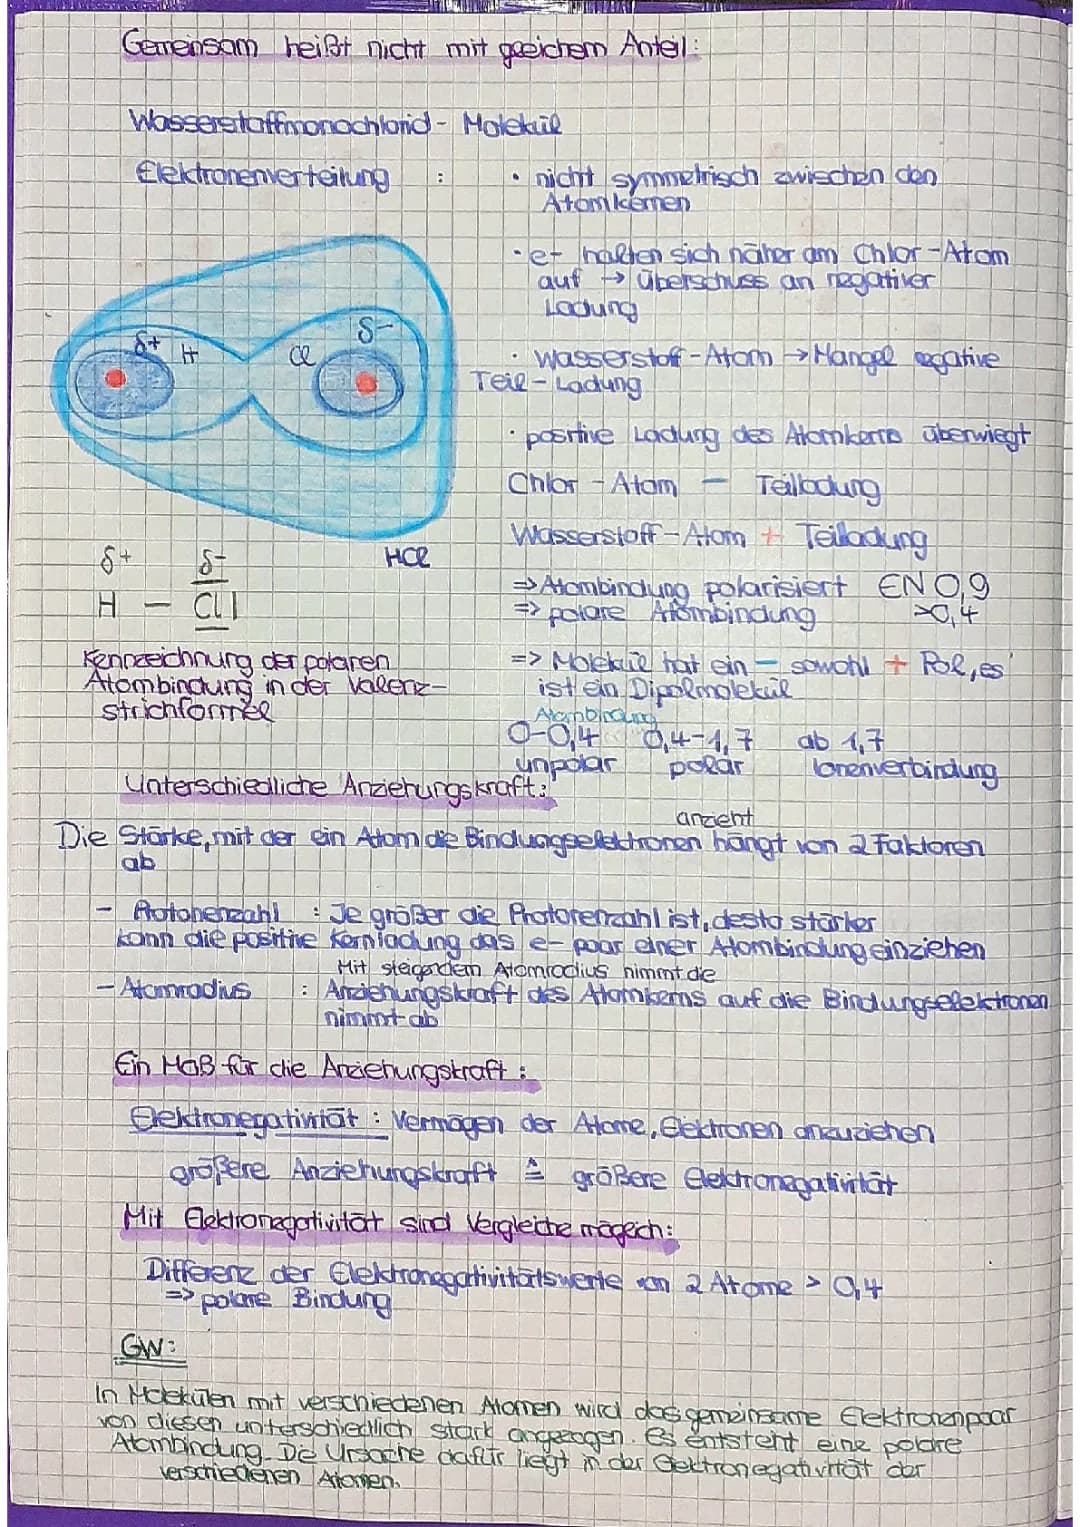 Gemeinsam heißt nicht mit gleichem Anteil:
Wasserstoffmonochlorid - Molekül
Elektronenverteilung : • nicht symmetrisch zwischen den
Atomkernen
• e- halten sich näher am Chlor-Atom
auf → Überschuss an negativer
Ladung
• Wasserstoff-Atom → Mangel negative
Teil-Ladung
• positive Ladung des Atomkerns überwiegt
Chlor - Atom - Teilladung
Wasserstoff-Atom + Teilladung
δ+ H Cl δ-
HCl
δ+ δ-
H - Cl|
⇒ Atombindung polarisiert EN 0,9
⇒ polare Atombindung >0,4
Kennzeichnung der polaren
Atombindung in der Valenz-
strichformel
⇒ Molekül hat ein - sowohl + Pol, es
ist ein Dipolmolekül
Atombindung
0-0,4 0,4-1,7 ab 1,7
unpolar polar Ionenverbindung
Unterschiedliche Anziehungskraft:
anzieht
Die Stärke, mit der ein Atom die Bindungselektronen hängt von 2 Faktoren
ab
- Protonenzahl : Je größer die Protonenzahl ist, desto stärker
kann die positive Kernladung das e- paar einer Atombindung einziehen
Mit steigendem Atomradius nimmt die
- Atomradius : Anziehungskraft des Atomkerns auf die Bindungselektronen
nimmt ab
Ein Maß für die Anziehungskraft:
Elektronegativität : Vermögen der Atome, Elektronen anzuziehen
größere Anziehungskraft ≙ größere Elektronegativität
Mit Elektronegativität sind Vergleiche möglich:
Differenz der Elektronegativitätswerte von 2 Atome > 0,4
=> polare Bindung
GW:
In Molekülen mit verschiedenen Atomen wird das gemeinsame Elektronenpaar
von diesen unterschiedlich stark angezogen. Es entsteht eine polare
Atombindung. Die Ursache dafür liegt in der Elektronegativität der
verschiedenen Atomen.